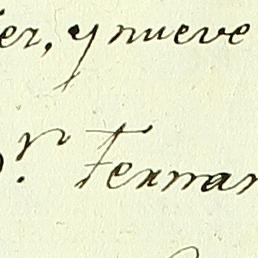 ez, y nueve
r. Fernan